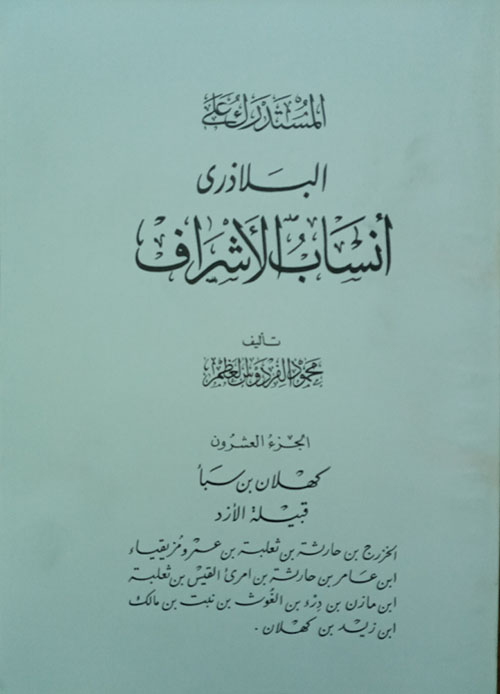 المستدرك على
البلاذرى
أنساب الأشراف
تأليف
محمود الفردوس العظم
الجزء العشرون
كهلان بن سبأ
قبيلة الأزد
الخزرج بن حارثة بن ثعلبة بن عمرو مزيقياء
ابن عامر بن حارثة بن امرئ القيس بن ثعلبة
ابن مازن بن درء بن الغوث بن نبت بن مالك
ابن زيد بن كهلان .